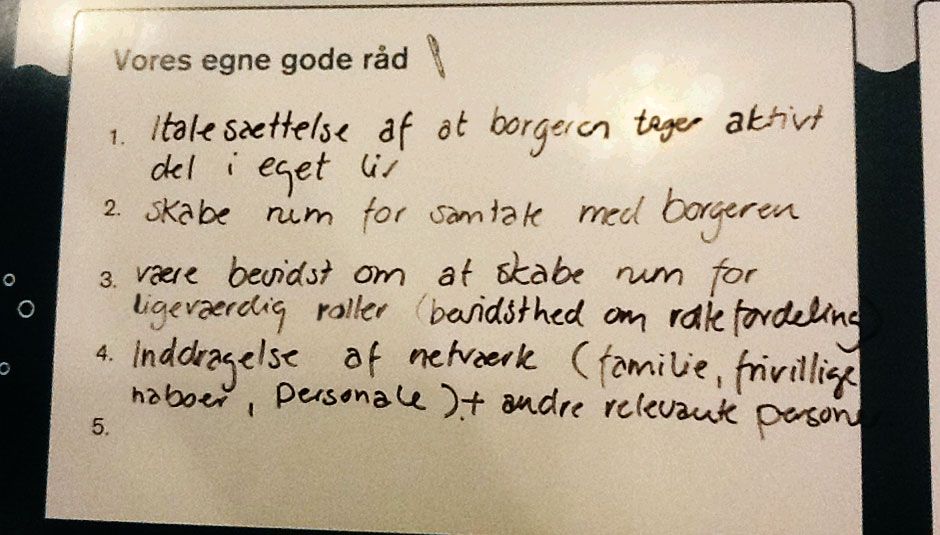 Vores egne gode råd
1. Italesættelse af at borgeren tager aktivt
del i eget liv
2. skabe rum for samtale med borgeren
3. være bevidst om at skabe rum for
ligeværdig roller (bevidsthed om rollefordeling)
4. Inddragelse af netværk (familie, frivillige
naboer, personale) + andre relevante person
5.